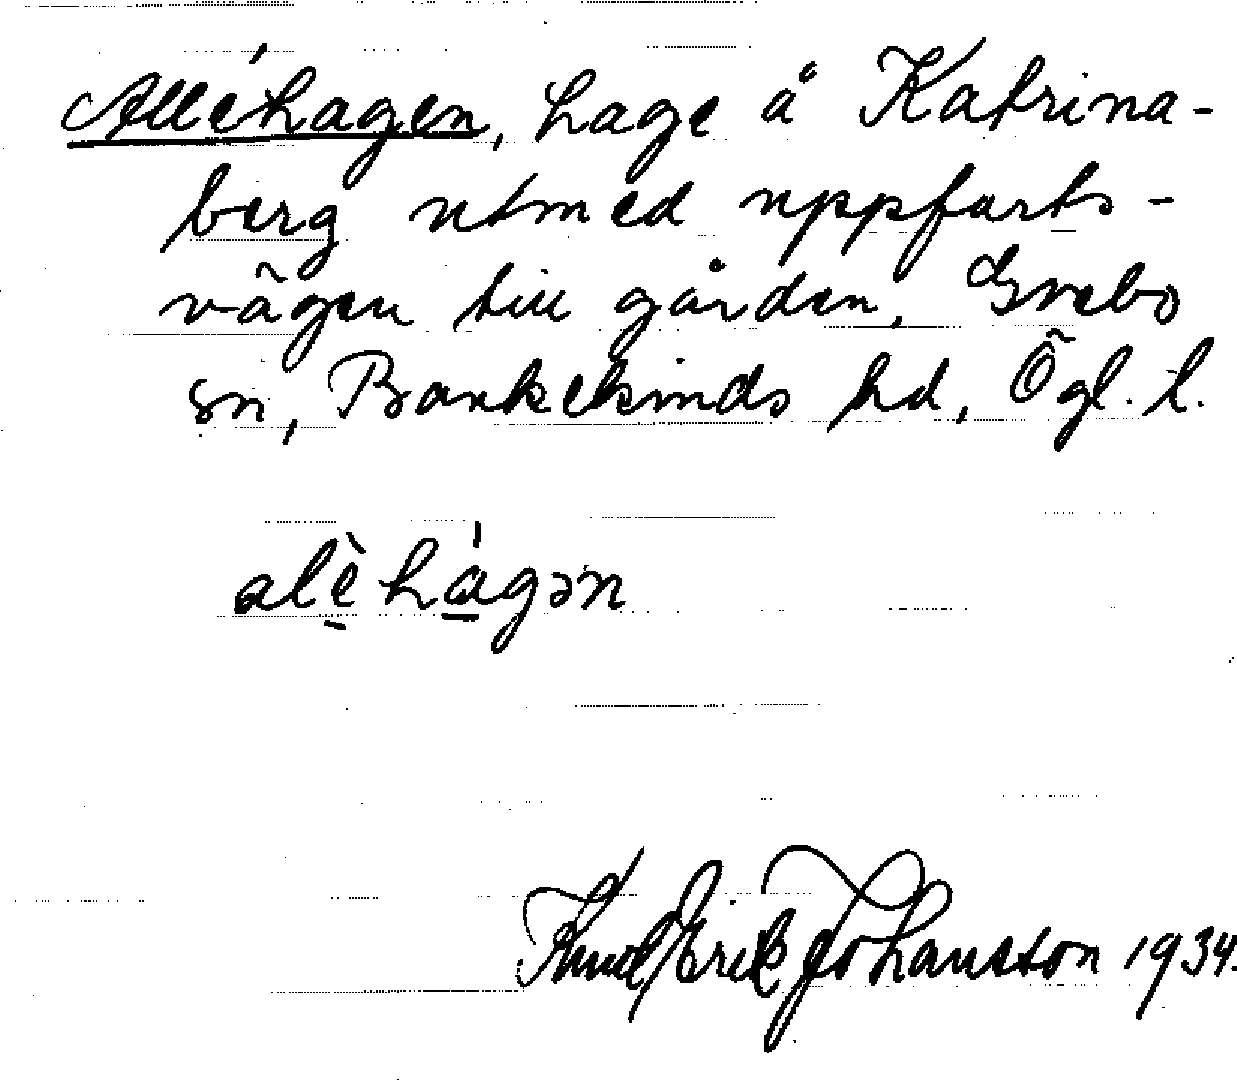 Alléhagen, hage å Katrina-
berg utmed uppfarts-
vägen till gården, Grebo
sn, Bankekinds hd, Ögl. l.
alèhágən
Knut Erik Johansson 1934.